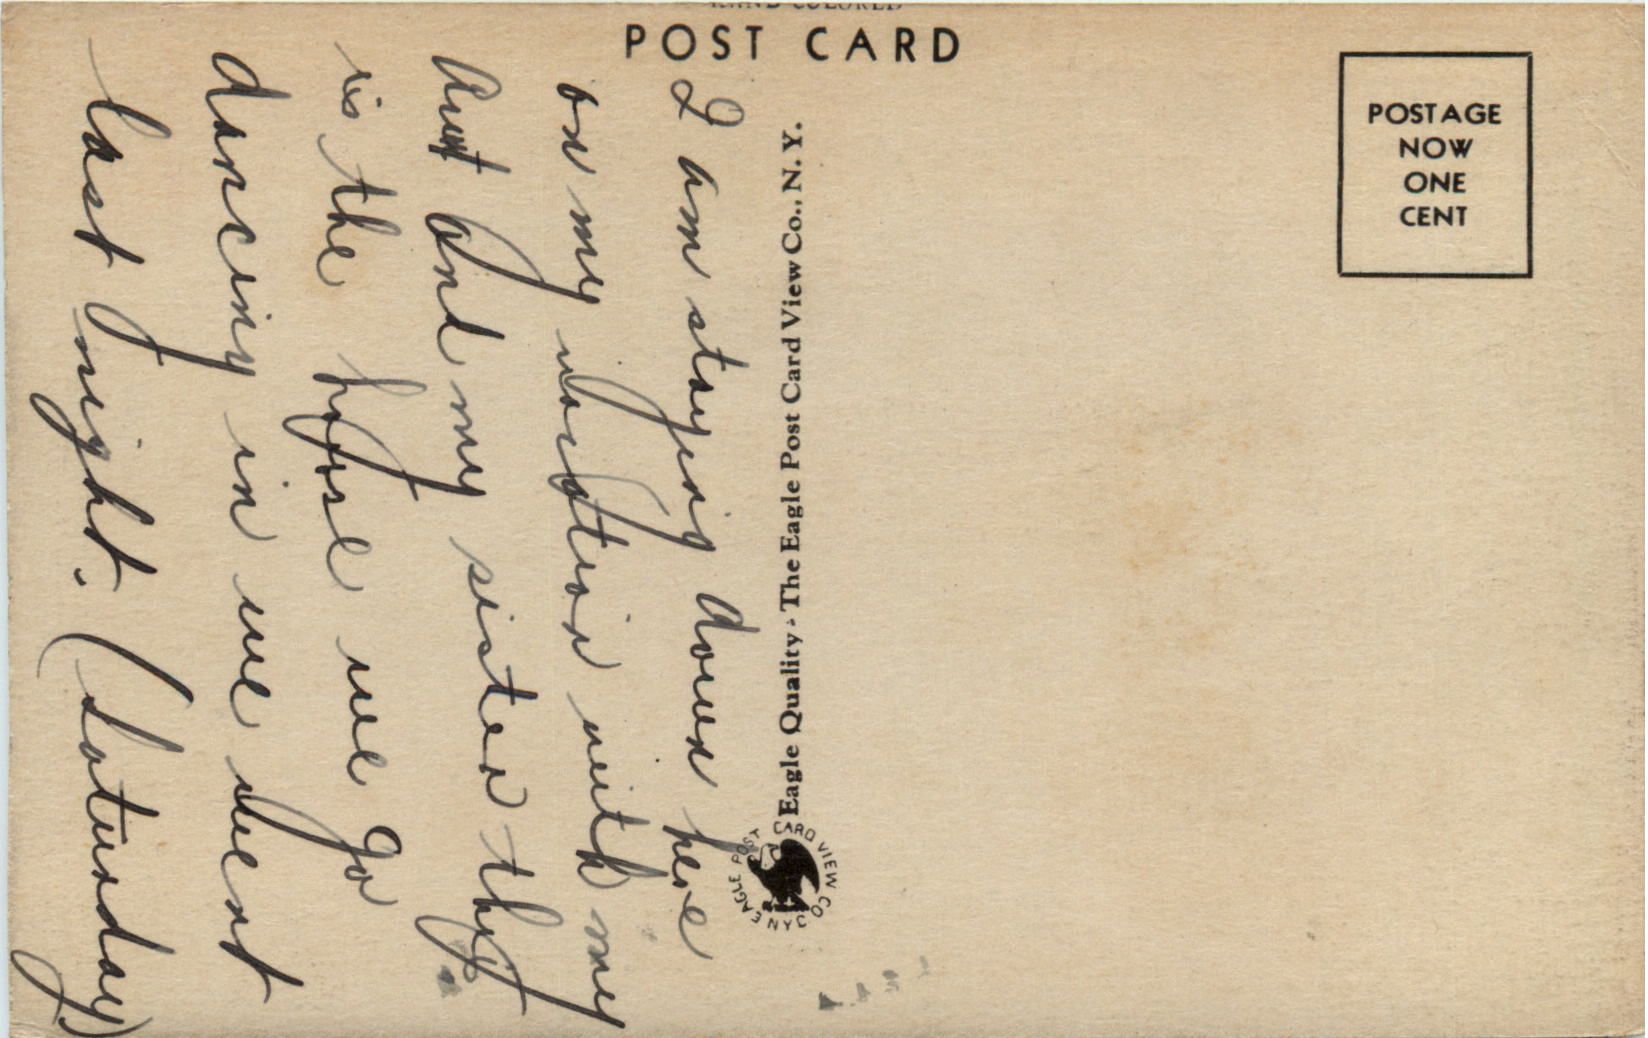 HAND COLORED
POST CARD
POSTAGE
NOW
ONE
CENT
I am staying down here
on my vacation with my
Aunt and my sister this
is the house we go
dancing in we went
last night. (Saturday)
Eagle Quality - The Eagle Post Card View Co., N. Y.
EAGLE POST CARD VIEW CO NY